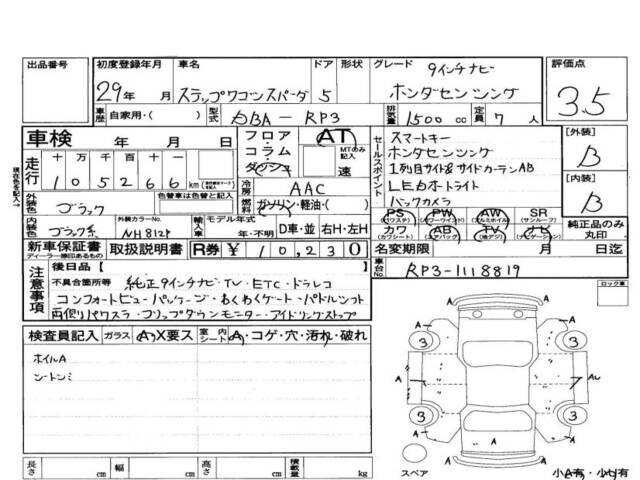 出品番号
初度登録年月 29年 月
車名 ステップワゴンスパーダ
ドア 5
形状
グレード 9インチナビ
ホンダセンシング
評価点 3.5
車歴 自家用・( )
型式 DBA-RP3
排気量 1500 cc
定員 7人
車検 年 月 日
フロア・コラム・ダッシュ
AT
MTのみ記入 速
セールスポイント
スマートキー
ホンダセンシング
1列目サイド&サイドカーテンAB
LEDオートライト
バックカメラ
[外装] B
[内装] B
現在色を記入→
走行 十 万 千 百 十
105266 km
冷房 AAC
燃料 ガソリン・軽油・( )
外装色 ブラック
色替車は色替と記入
内装色 ブラック系
外装カラーNo. NH812P
輸入車 モデル年式 年・不明
D車・並 右H・左H
PS (パワステ)
PW (パワーウインド)
AW (アルミホイル)
SR (サンルーフ)
カワ (カワシート)
AB (エアバック)
TV (地デジ)
ナビ (ナビゲーション)
純正品のみ丸印
新車保証書 ディーラー捺印あるもの
取扱説明書
R券 ¥10,230
名変期限 月 日迄
車台No. RP3-1118819
注意事項
後日品[ ]
不具合箇所等 純正9インチナビ・TV・ETC・ドラレコ
コンフォートビューパッケージ・わくわくゲート・パドルシフト
両側パワスラ・フリップダウンモニター・アイドリングストップ
ロック車
検査員記入 ガラス A・X要ス 室内シート A・コゲ・穴・汚れ・破れ
ホイルA
A
3 3
A A
A
3 3
A A
A
スペア
小A有・小U有
長さ cm 幅 cm 高さ cm 積載量 kg